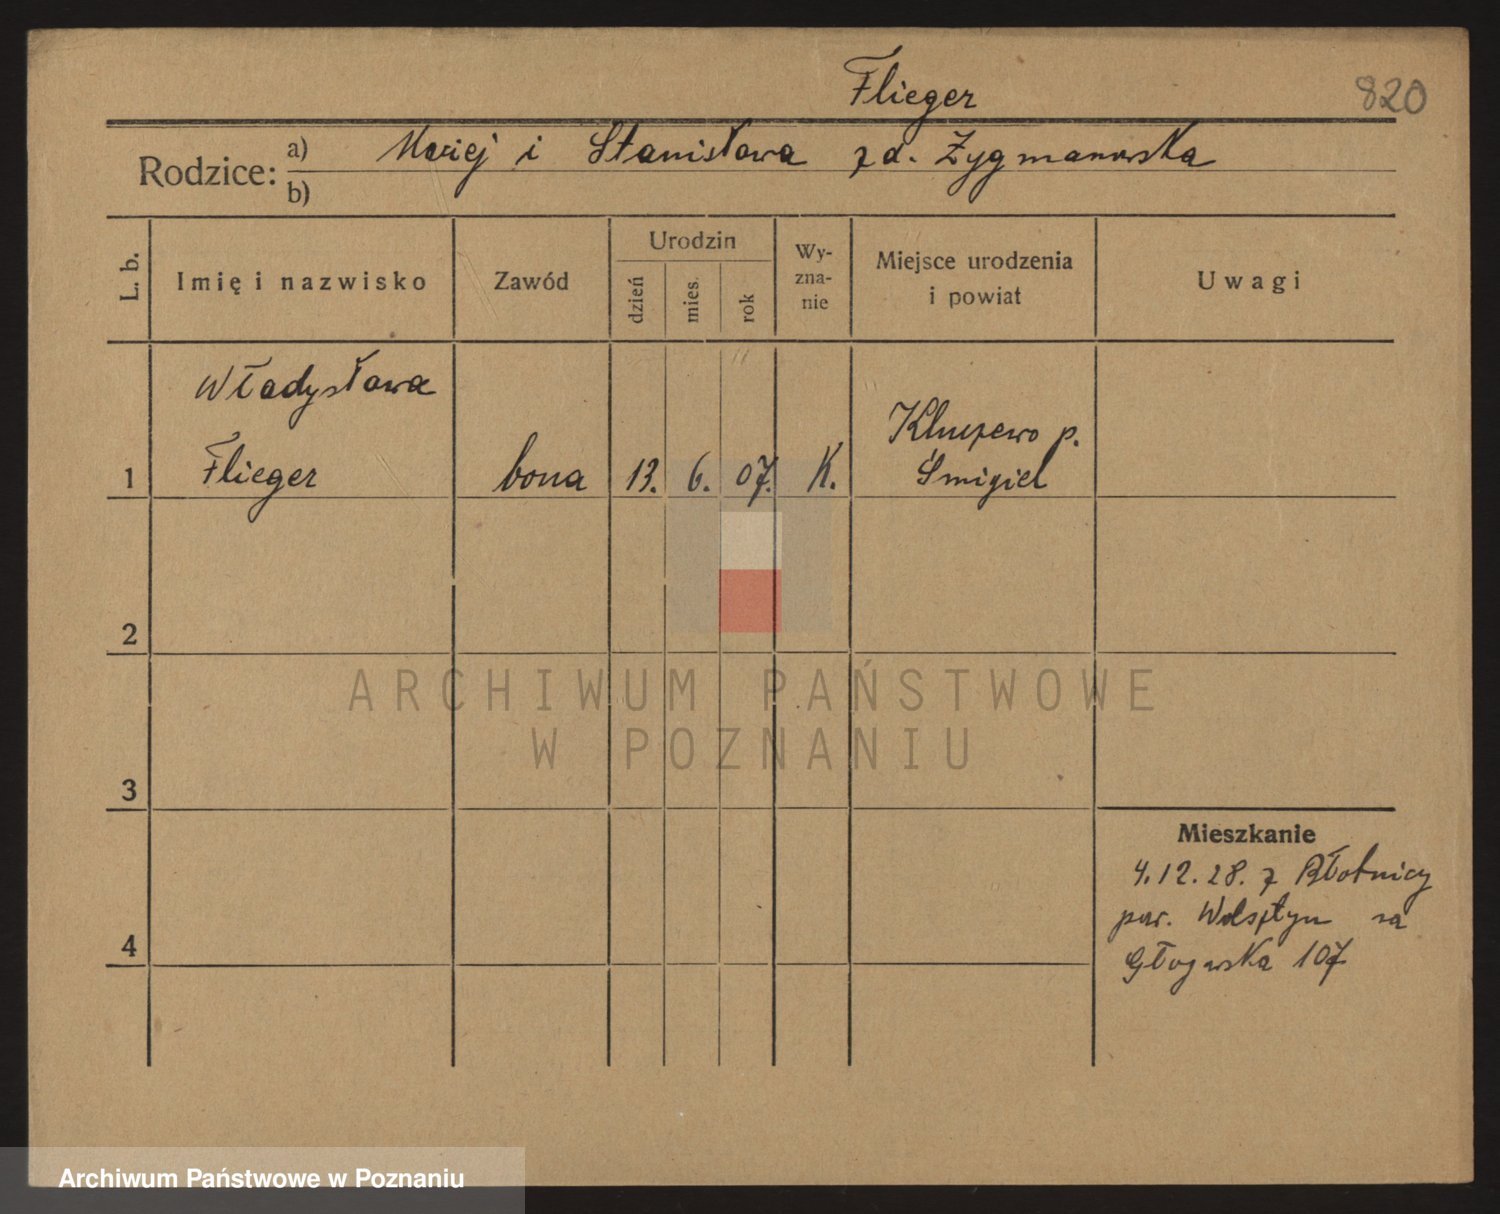 Flieger
820
Rodzice: a) Maciej i Stanisława zd. Zygmanowska
b)
L. b.
Imię i nazwisko
Zawód
Urodzin
dzień
mies.
rok
Wy-
zna-
nie
Miejsce urodzenia
i powiat
Uwagi
Władysława
Flieger
1
bona
13. 6. 07. K.
Kluczewo p.
Śmigiel
2
ARCHIWUM PAŃSTWOWE
W POZNANIU
3
Mieszkanie
4.12.28. z Błotnicy
pow. Wolsztyn na
Głogowska 107
4
Archiwum Państwowe w Poznaniu